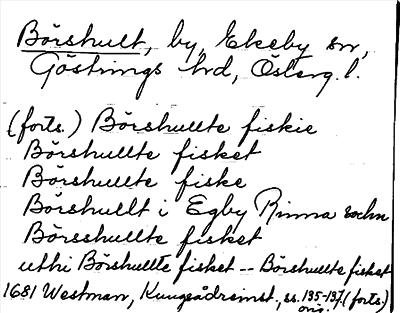 Börshult, by, Ekeby sn,
Göstrings hrd, Österg. l.
(forts.) Börshullte fiskie
Börshullte fisket
Börshullte fiske
Börshullt i Egby Rinna sochn
Börsshullte fisket
uthi Börshullte fisket -- Börshullte fisket
1681 Westman, Kungsådreinst., ss. 135-137 (forts.)
orig.